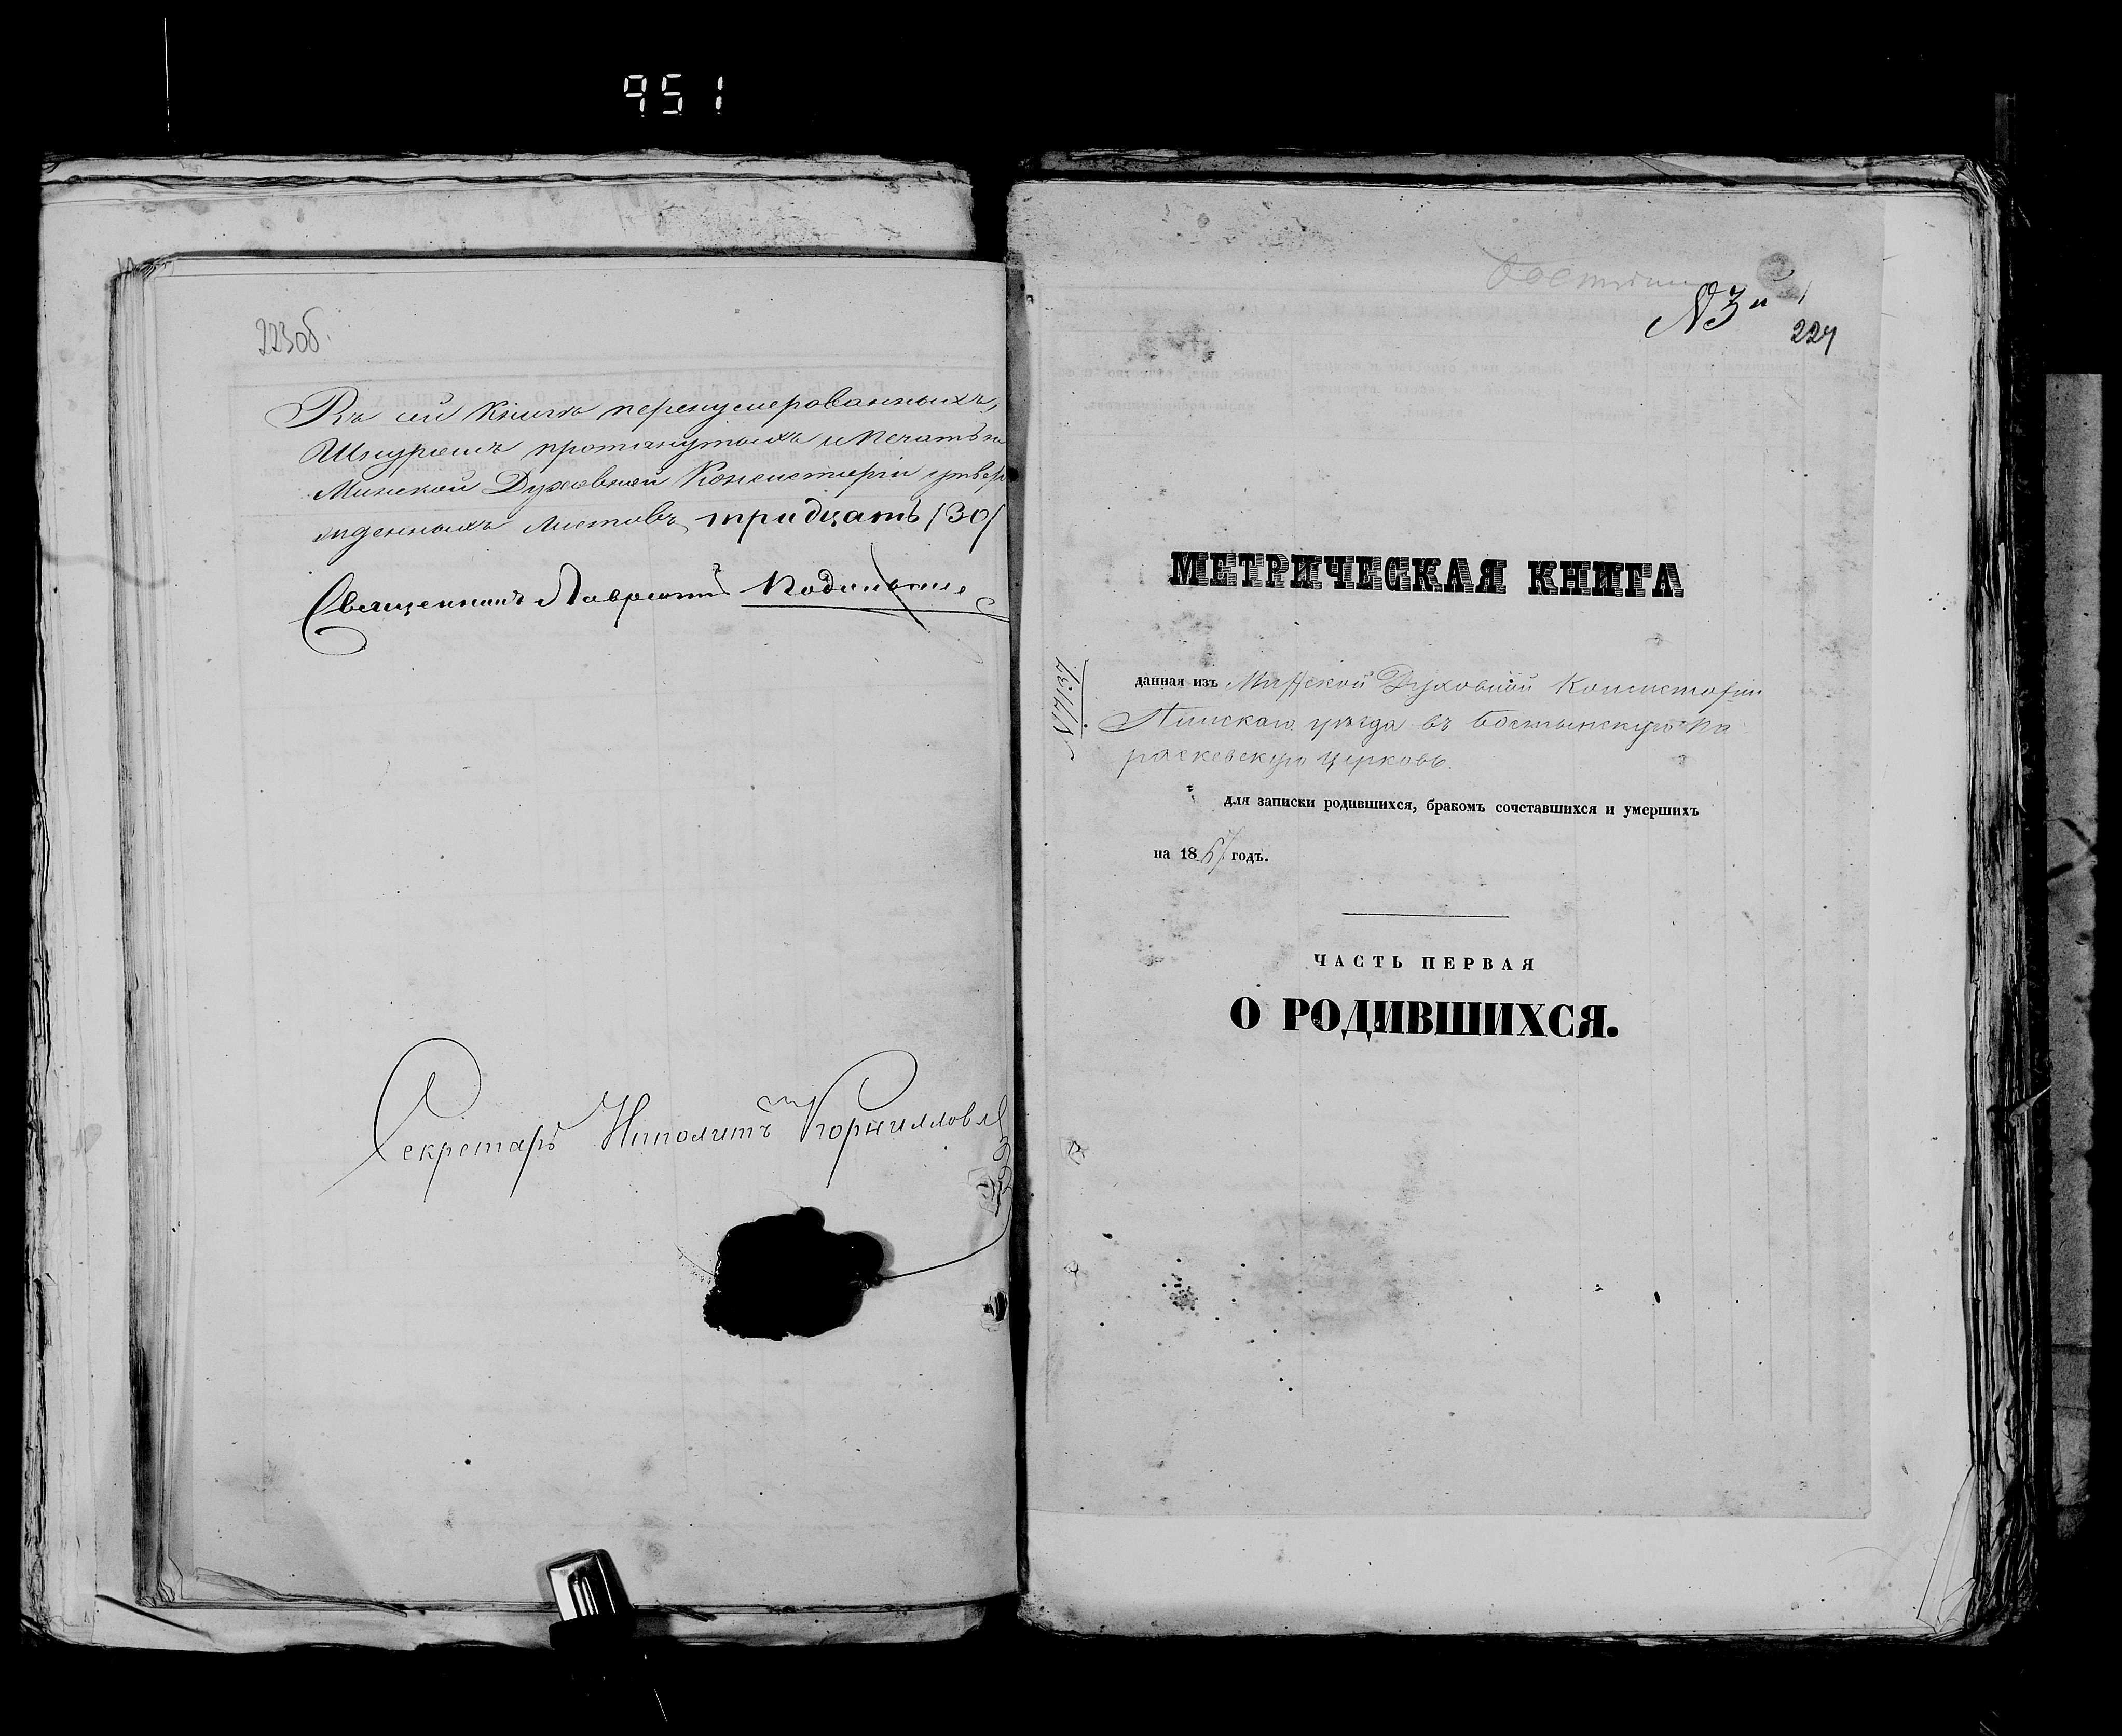 951
223об.
Въ сей книгѣ перенумерованныхъ,
Шнуромъ протянутыхъ и печатью
Минской Духовной Консисторіи утвер
жденныхъ листовъ тридцать /30/
Священникъ Лаврентій
Секретарь Иполитъ Корниловъ
N 3й
224
МЕТРИЧЕСКАЯ КНИГА
N 7137
данная изъ Минской Духовной Консисторіи
Пинскаго уѣзда въ Бостынскую Па
раскевскую церковь.
для записки родившихся, бракомъ сочетавшихся и умершихъ
на 18 годъ.
ЧАСТЬ ПЕРВАЯ
О РОДИВШИХСЯ.